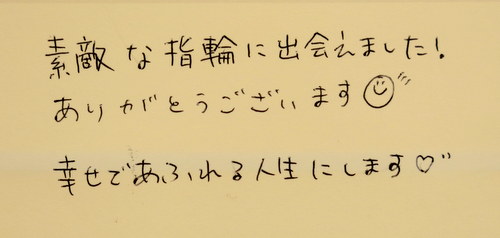 素敵な指輪に出会えました!
ありがとうございます☺
幸せであふれる人生にします♡